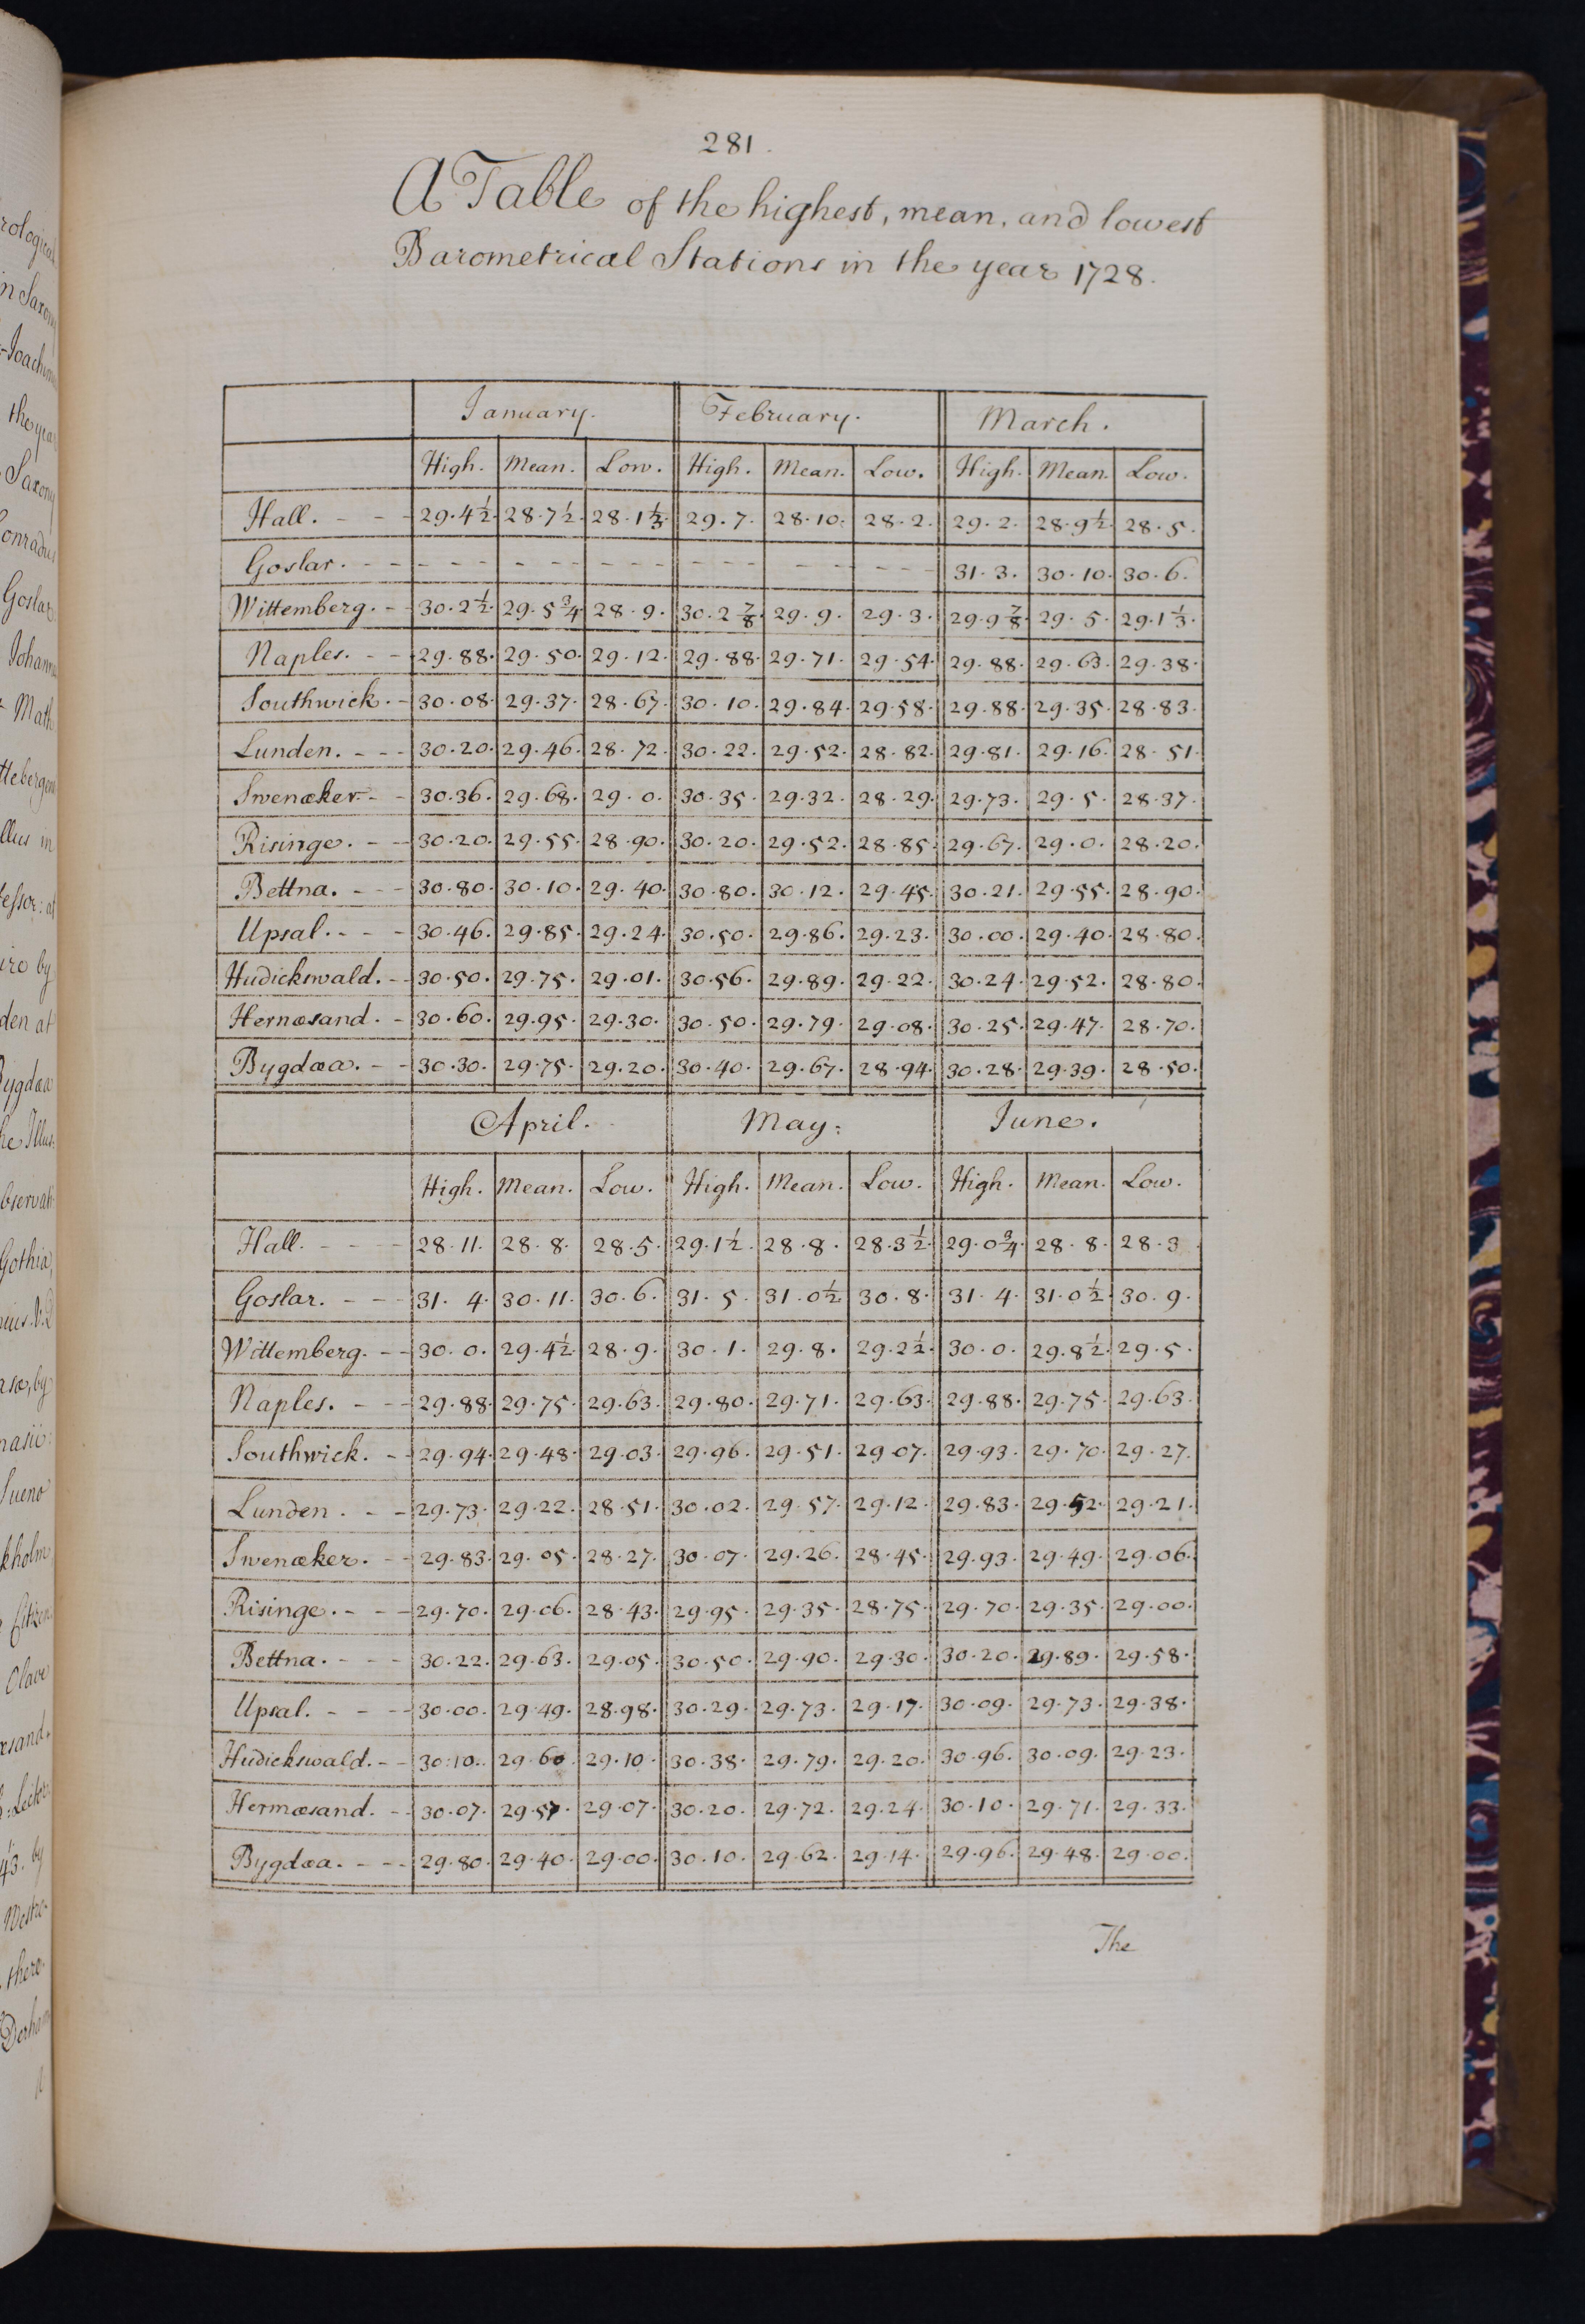 281.
A Table of the highest, mean, and lowest
Barometrical Stations in the year 1728.
January. February. March.
High. Mean. Low. High. Mean. Low. High. Mean. Low.
Hall. - - - 29.4½. 28.7½. 28.1⅓. 29.7. 28.10. 28.2. 29.2. 28.9½. 28.5.
Goslar. - - - - - - - - - - - - - - - - - - - - 31.3. 30.10. 30.6.
Wittemberg. - - 30.2½. 29.5¾. 28.9. 30.2⅞. 29.9. 29.3. 29.9⅞. 29.5. 29.1⅓.
Naples. - - 29.88. 29.50. 29.12. 29.88. 29.71. 29.54. 29.88. 29.63. 29.38.
Southwick. - 30.08. 29.37. 28.67. 30.10. 29.84. 29.58. 29.88. 29.35. 28.83.
Lunden. - - - 30.20. 29.46. 28.72. 30.22. 29.52. 28.82. 29.81. 29.16. 28.51.
Swenæker. - - 30.36. 29.68. 29.0. 30.35. 29.32. 28.29. 29.73. 29.5. 28.37.
Risinge. - - 30.20. 29.55. 28.90. 30.20. 29.52. 28.85. 29.67. 29.0. 28.20.
Bettna. - - - 30.80. 30.10. 29.40. 30.80. 30.12. 29.45. 30.21. 29.55. 28.90.
Upsal. - - - 30.46. 29.85. 29.24. 30.50. 29.86. 29.23. 30.00. 29.40. 28.80.
Hudickswald. - - 30.50. 29.75. 29.01. 30.56. 29.89. 29.22. 30.24. 29.52. 28.80.
Hernæsand. - 30.60. 29.95. 29.30. 30.50. 29.79. 29.08. 30.25. 29.47. 28.70.
Bygdæa. - - 30.30. 29.75. 29.20. 30.40. 29.67. 28.94. 30.28. 29.39. 28.50.
April. May. June.
High. Mean. Low. High. Mean. Low. High. Mean. Low.
Hall. - - - 28.11. 28.8. 28.5. 29.1½. 28.8. 28.3½. 29.0¾. 28.8. 28.3.
Goslar. - - - 31.4. 30.11. 30.6. 31.5. 31.0½. 30.8. 31.4. 31.0½. 30.9.
Wittemberg. - - 30.0. 29.4½. 28.9. 30.1. 29.8. 29.2½. 30.0. 29.8½. 29.5.
Naples. - - - 29.88. 29.75. 29.63. 29.80. 29.71. 29.63. 29.88. 29.75. 29.63.
Southwick. - 29.94. 29.48. 29.03. 29.96. 29.51. 29.07. 29.93. 29.70. 29.27.
Lunden. - - 29.73. 29.22. 28.51. 30.02. 29.57. 29.12. 29.83. 29.52. 29.21.
Swenæker. - - 29.83. 29.05. 28.27. 30.07. 29.26. 28.45. 29.93. 29.49. 29.06.
Risinge. - - - 29.70. 29.06. 28.43. 29.95. 29.35. 28.75. 29.70. 29.35. 29.00.
Bettna. - - - 30.22. 29.63. 29.05. 30.50. 29.90. 29.30. 30.20. 29.89. 29.58.
Upsal. - - - 30.00. 29.49. 28.98. 30.29. 29.73. 29.17. 30.09. 29.73. 29.38.
Hudickswald. - - 30.10. 29.60. 29.10. 30.38. 29.79. 29.20. 30.96. 30.09. 29.23.
Hermæsand. - - 30.07. 29.57. 29.07. 30.20. 29.72. 29.24. 30.10. 29.71. 29.33.
Bygdæa. - - - 29.80. 29.40. 29.00. 30.10. 29.62. 29.14. 29.96. 29.48. 29.00.
The